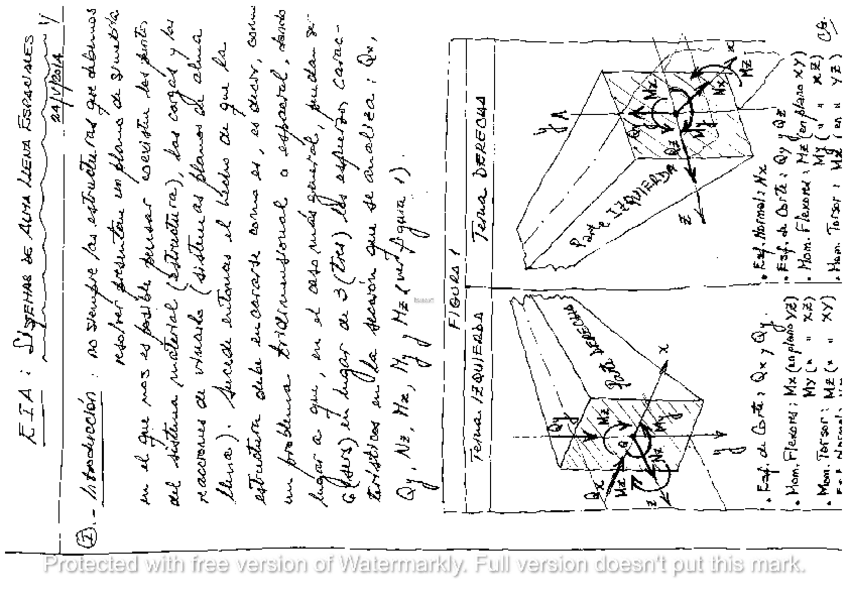 EIA: SISTEMAS DE ALMA LLENA ESPACIALES
24/V/2014
1/
I.- Introducción: no siempre las estructuras que debemos
resolver presentan un plano de simetría
en el que nos es posible pensar coexisten los puntos
del sistema material (estructura), las cargas y las
reacciones de vínculo (sistemas planos de alma
llena). Sucede entonces el hecho de que la
estructura debe encararse como es, es decir, como
un problema tridimensional o espacial, dando
lugar a que, en el caso más general, puedan ser
6 (seis) en lugar de 3 (tres) los esfuerzos carac-
terísticos en la sección que se analiza: Qx,
Qy, Nz, Mx, My y Mz (ver figura 1).
FIGURA 1
Terna IZQUIERDA
Terna DERECHA
Parte DERECHA
Qy
Qx
Mz
Mx
My
Nz
G
x
y
z
Parte IZQUIERDA
y
Qy
Mx
Qz
My
Nx
Mz
x
z
• Esf. de Corte: Qx y Qy.
• Mom. Flexores: Mx (en plano YZ)
My (" " XZ)
• Mom. Torsor: Mz (" " XY)
• Esf. Normal: Nz
• Esf. Normal: Nx
• Esf. de Corte: Qy y Qz
• Mom. Flexores: Mz (en plano XY)
My (" " XZ)
• Mom. Torsor: Mx (en " YZ)
CG.
Protected with free version of Watermarkly. Full version doesn't put this mark.